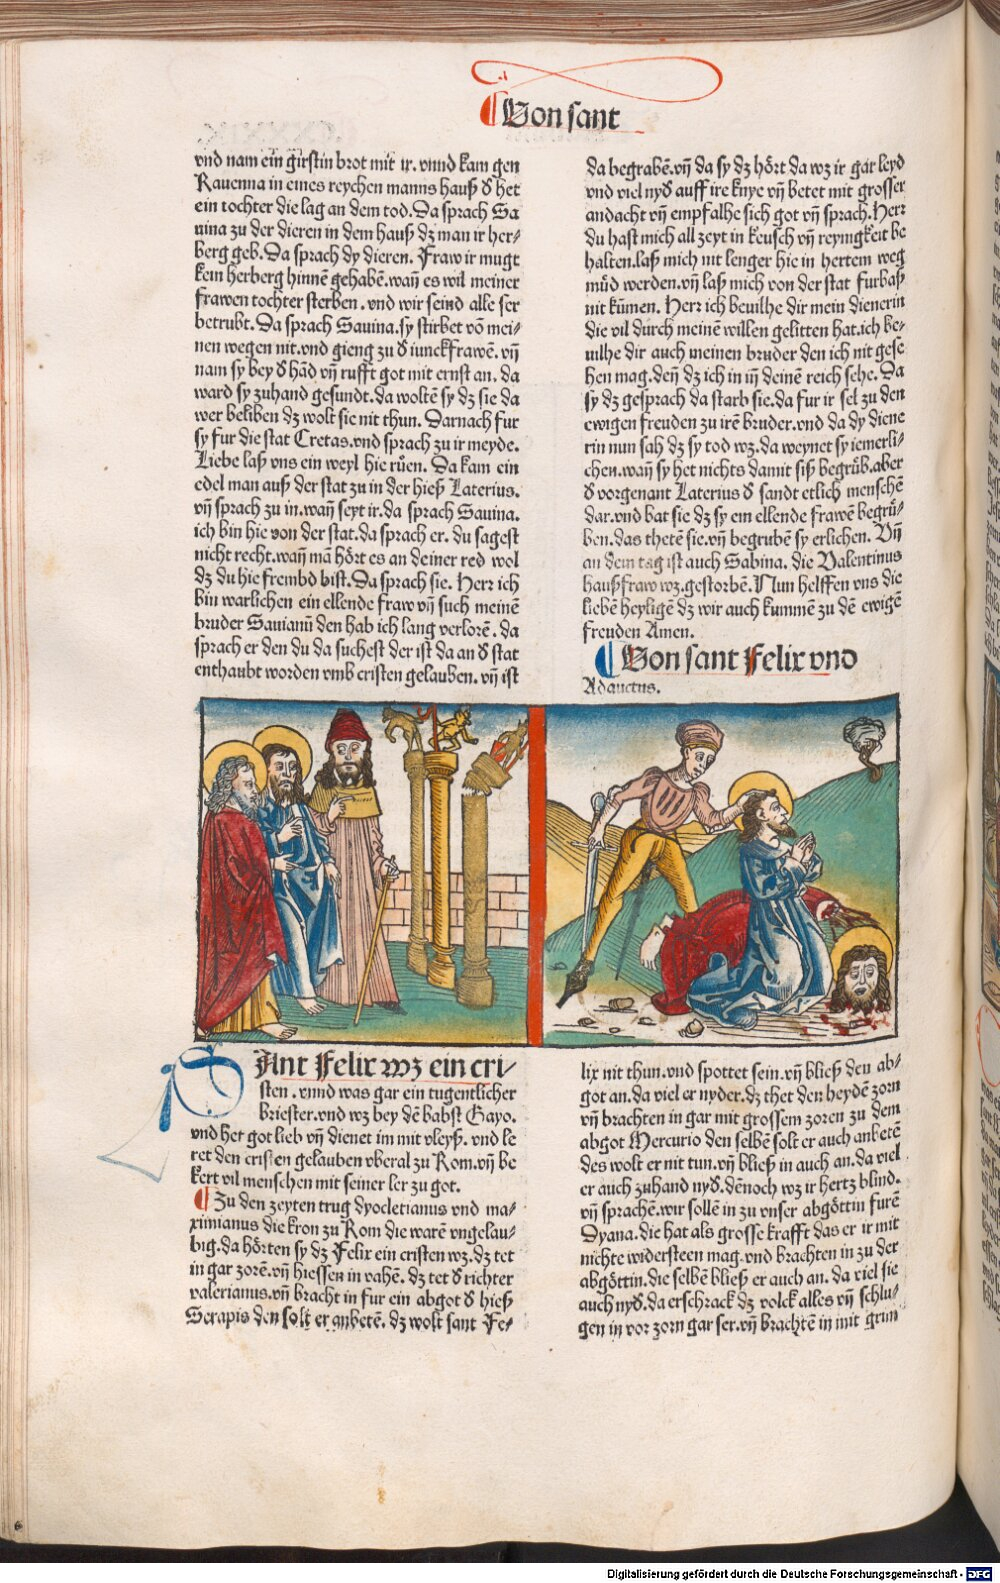 Von sant
vnd nam ein girstin brot mit ir. vnnd kam gen
Rauenna in eines reychen manns hauß ď het
ein tochter die lag an dem tod. Da sprach Sa
uina zu der dieren in dem hauß dz man ir her-
berg geb. Da sprach dy dieren. Fraw ir mugt
kein herberg hinnē gehabē. wañ es wil meiner
frawen tochter sterben. vnd wir seind alle ser
betrubt. Da sprach Sauina. sy stirbet vō mei-
nen wegen nit. vnd gieng zu ď iunckfrawē. vñ
nam sy bey ď hād vñ rufft got mit ernst an. da
ward sy zuhand gesundt. da woltē sy dz sie da
wer beliben dz wolt sie nit thun. Darnach fur
sy fur die stat Cretas. vnd sprach zu ir meyde.
Liebe laß vns ein weyl hie růen. Da kam ein
edel man auß der stat zu in der hieß Laterius.
vñ sprach zu in. wañ seyt ir. da sprach Sauina.
ich bin hie von der stat. da sprach er. du sagest
nicht recht. wañ mā hört es an deiner red wol
dz du hie frembd bist. Da sprach sie. Herr ich
bin warlichen ein ellende fraw vñ such meinē
bruder Sauianū den hab ich lang verlorē. da
sprach er den du da suchest der ist da an ď stat
enthaubt worden vmb cristen gelauben. vñ ist
da begrabē. vñ da sy dz hört da wz ir gar leyd
vnd viel nyď auff ire knye vñ betet mit grosser
andacht vñ empfalhe sich got vñ sprach. Herr
du hast mich all zeyt in keusch vñ reynigkeit be
halten. laß mich nit lenger hie in hertem weg
můd werden. vñ laß mich von der stat furbaß
nit kūmen. Herr ich beuilhe dir mein dienerin
die vil durch meinē willen gelitten hat. ich be-
uilhe dir auch meinen bruder den ich nit gese
hen mag. deñ dz ich in in deinē reich sehe. Da
sy dz gesprach da starb sie. da fur ir sel zu den
ewigen freuden zu irē bruder. vnd da dy diene
rin nun sah dz sy tod wz. da weynet sy iemerli-
chen. wañ sy het nichts damit siß begrůb. aber
ď vorgenant Laterius ď sandt etlich menschē
dar. vnd bat sie dz sy ein ellende frawē begrů-
ben. das thetē sie. vñ begrubē sy erlichen. Vñ
an dem tag ist auch Sabina. die Valentinus
haußfraw wz. gestorbē. Nun helffen vns die
liebē heyligē dz wir auch kummē zu dē ewigē
freuden Amen.
Von sant Felix vnd
Adauctus.
SAnt Felix wz ein cri-
sten. vnnd was gar ein tugentlicher
briester. vnd wz bey dē babst Gayo.
vnd het got lieb vñ dienet im mit vleyß. vnd le
ret den cristen gelauben vberal zu Rom. vñ be
kert vil menschen mit seiner ler zu got.
Zu den zeyten trug dyocletianus vnd ma-
ximianus die kron zu Rom die warē vngelau-
big. da hörten sy dz Felix ein cristen wz. dz tet
in gar zorē. vñ hiessen in vahē. dz tet ď richter
valerianus. vñ bracht in fur ein abgot ď hieß
Serapis den solt er anbetē. dz wolt sant Fe-
lix nit thun. vnd spottet sein. vñ bließ den ab-
got an. da viel er nyder. dz thet den heydē zorn
vñ brachten in gar mit grossem zoren zu dem
abgot Mercurio den selbē solt er auch anbetē
des wolt er nit tun. vñ bließ in auch an. da viel
er auch zuhand nyď. dēnoch wz ir hertz blind.
vñ sprachē. wir sollē in zu vnser abgöttin furē
Dyana. die hat als grosse krafft das er ir mit
nichte widersteen mag. vnd brachten in zu der
abgöttin. die selbē bließ er auch an. da viel sie
auch nyď. da erschrack dz volck alles vñ schlu-
gen in vor zorn gar ser. vñ brachtē in mit grim
Digitalisierung gefördert durch die Deutsche Forschungsgemeinschaft - DFG